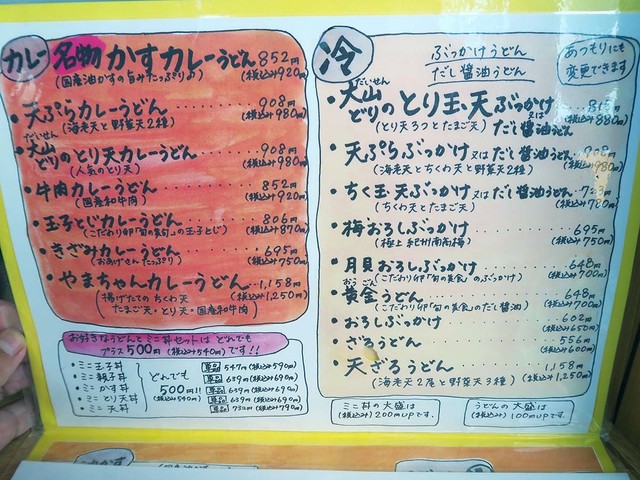 カレー
名物 かすカレーうどん 852円
(国産油かすの旨みたっぷり♪) (税込み920円)
・天ぷらカレーうどん 908円
(海老天と野菜天2種) (税込み980円)
だいせん
・大山どりのとり天カレーうどん 908円
(人気のとり天) (税込み980円)
・牛肉カレーうどん 852円
(国産和牛肉) (税込み920円)
・玉子とじカレーうどん 806円
(こだわり卵「旬の美旬」の玉子とじ) (税込み870円)
・きざみカレーうどん 695円
(おあげさんたっぷり) (税込み750円)
・やまちゃんカレーうどん 1,158円
(揚げたての ちくわ天 (税込み1,250円)
たまご天・とり天・国産和牛肉)
お好きなうどんとミニ丼セットは どれでも
プラス500円(税込み540円)です!!
・ミニ玉子丼
・ミニ親子丼
・ミニかす丼
・ミニとり天丼
・ミニ天丼
どれでも
500円!!
(税込み540円)
単品 547円(税込み590円)
単品 639円(税込み690円)
単品 639円(税込み690円)
単品 639円(税込み690円)
単品 732円(税込み790円)
冷
ぶっかけうどん
だし醤油うどん
あつもりにも
変更できます
だいせん
・大山どりのとり玉天ぶっかけ 815円
又は (税込み880円)
(とり天3つとたまご天) だし醤油うどん
・天ぷらぶっかけ又はだし醤油うどん 908円
(海老天とちくわ天と野菜天2種) (税込み980円)
・ちく玉天ぶっかけ又はだし醤油うどん
(ちくわ天とたまご天) (税込み780円)
・梅おろしぶっかけ 695円
(極上 紀州南高梅) (税込み750円)
・月見おろしぶっかけ 648円
(こだわり卵「旬の美食」のぶっかけ) (税込み700円)
おうごん
・黄金うどん 648円
(こだわり卵「旬の美食」のだし醤油) (税込み700円)
・おろしぶっかけ 602円
(税込み650円)
・ざるうどん 556円
(税込み600円)
・天ざるうどん 1,158円
(海老天2尾と野菜天3種) (税込み1,250円)
ミニ丼の大盛は
(税込み)200円UPです。
うどんの大盛は
(税込み)100円UPです。